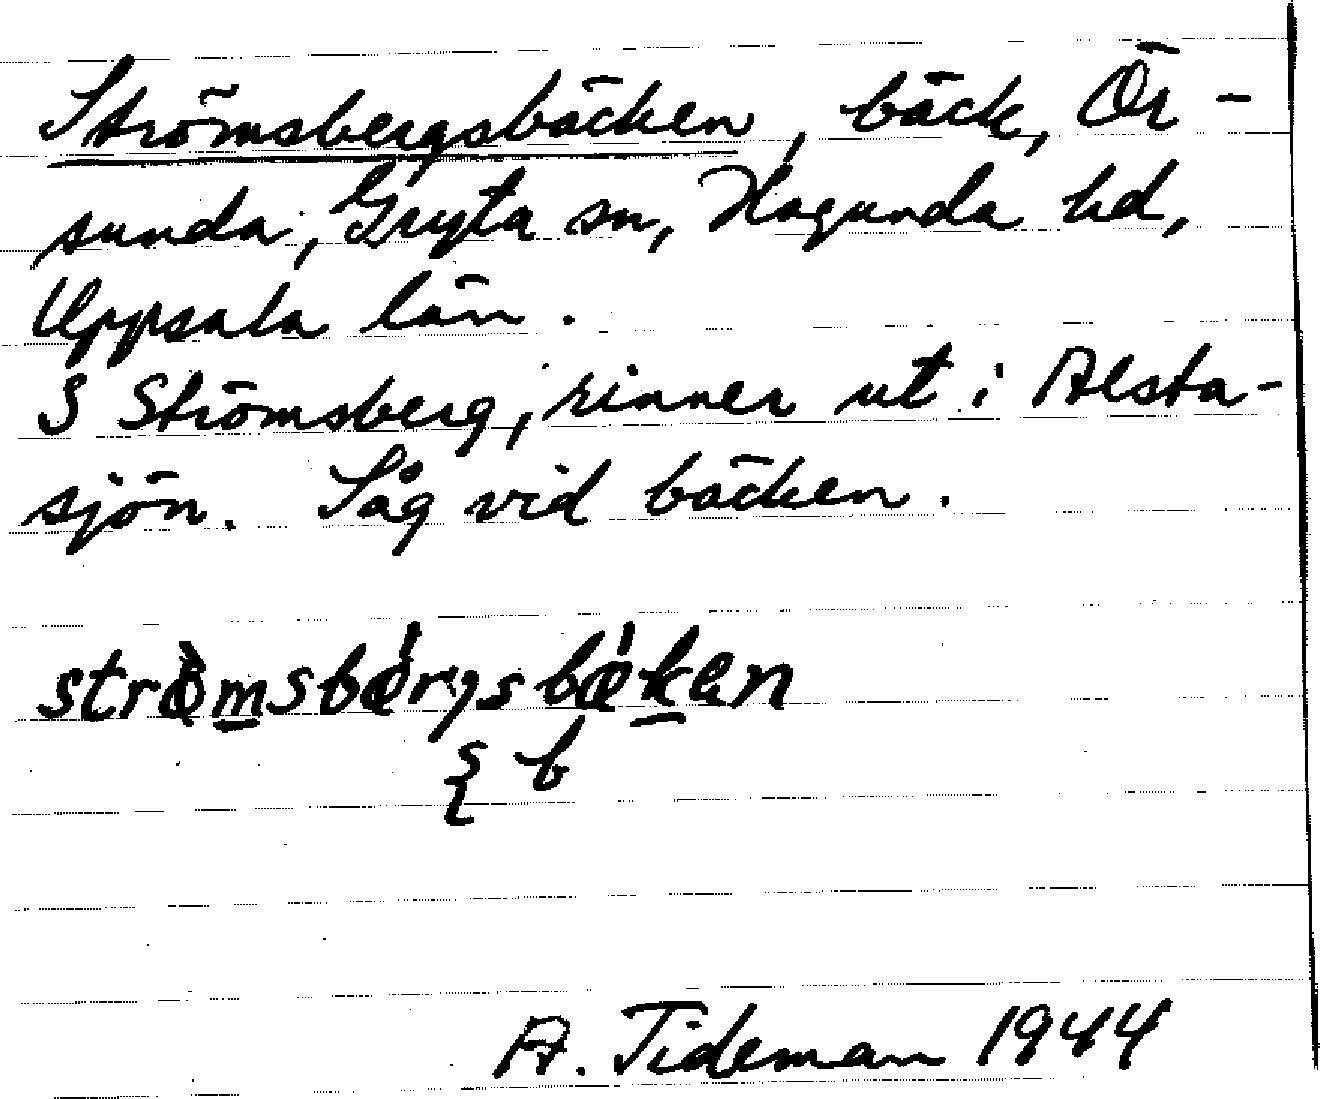 Strömsbergsbäcken, bäck, Ör-
sunda, Gryta sn, Hagunda hd,
Uppsala län.
S Strömsberg, rinner ut i Alsta-
sjön. Såg vid bäcken.
A. Tideman 1944